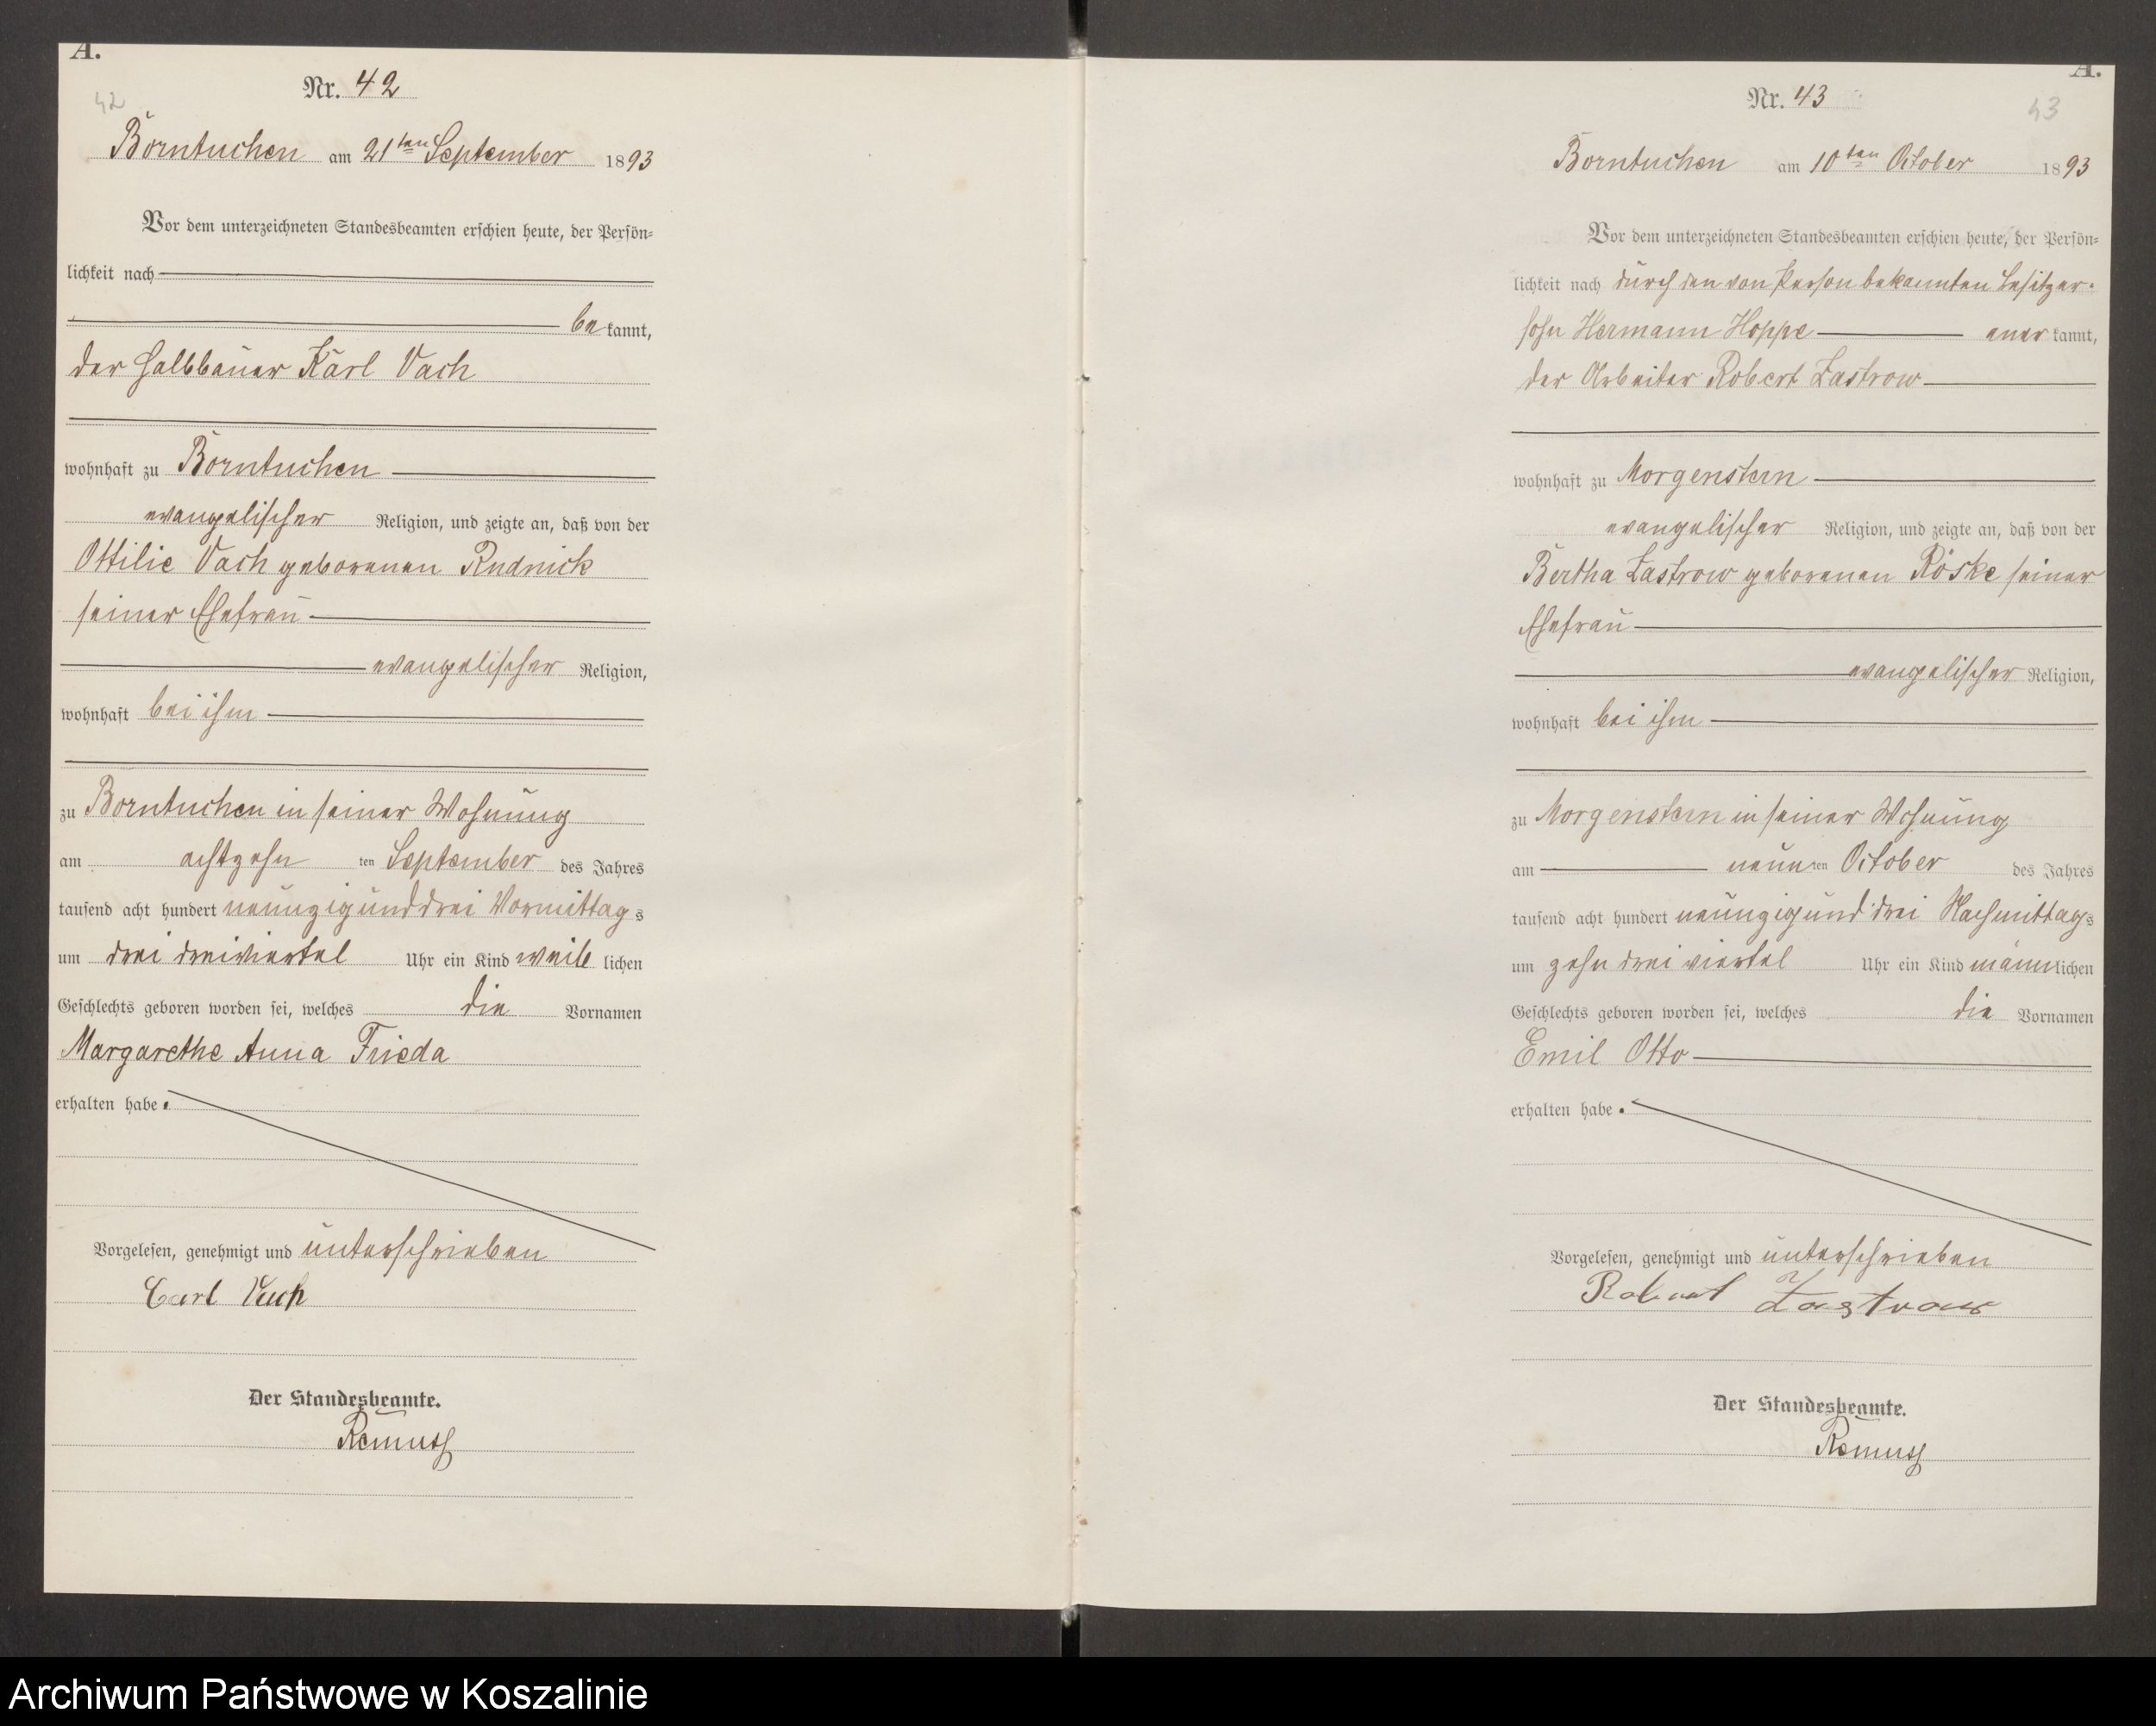 A.
Nr. 42
42
Borntuchen am 21ten September 1893
Vor dem unterzeichneten Standesbeamten erschien heute, der Persön-
lichkeit nach
bekannt,
der Halbbauer Karl Vach
wohnhaft zu Borntuchen
evangelischer Religion, und zeigte an, daß von der
Ottilie Vach geborenen Rudnick
seiner Ehefrau
evangelischer Religion,
wohnhaft bei ihm
zu Borntuchen in seiner Wohnung
am achtzehn ten September des Jahres
tausend acht hundert neunzig und drei Vormittags
um drei dreiviertel Uhr ein Kind weiblichen
Geschlechts geboren worden sei, welches die Vornamen
Margarethe Anna Frieda
erhalten habe.
Vorgelesen, genehmigt und unterschrieben
Carl Vach
Der Standesbeamte.
Remus
A.
Nr. 43
43
Borntuchen am 10ten October 1893
Vor dem unterzeichneten Standesbeamten erschien heute, der Persön-
lichkeit nach durch den von Person bekannten Besitzer-
sohn Hermann Hoppe anerkannt,
der Arbeiter Robert Zastrow
wohnhaft zu Morgenstern
evangelischer Religion, und zeigte an, daß von der
Bertha Zastrow geborenen Röske seiner
Ehefrau
evangelischer Religion,
wohnhaft bei ihm
zu Morgenstern in seiner Wohnung
am neunten October des Jahres
tausend acht hundert neunzig und drei Nachmittags
um zehn drei viertel Uhr ein Kind männlichen
Geschlechts geboren worden sei, welches die Vornamen
Emil Otto
erhalten habe.
Vorgelesen, genehmigt und unterschrieben
Robert Zastrow
Der Standesbeamte.
Remus
Archiwum Państwowe w Koszalinie